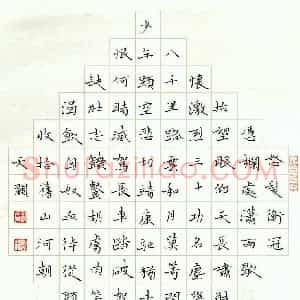 怒髮衝冠
憑欄處瀟雨歇
抬望眼仰天長嘯
懷激烈三十功名塵與
八千里路雲和月莫等閒
少年頭空悲切靖康恥猶未
恨何時滅駕長車踏破賀
缺壯志飢餐胡虜肉
渴飲匈奴血待從頭
收拾舊山河朝
天闕
Shufaziliao.com